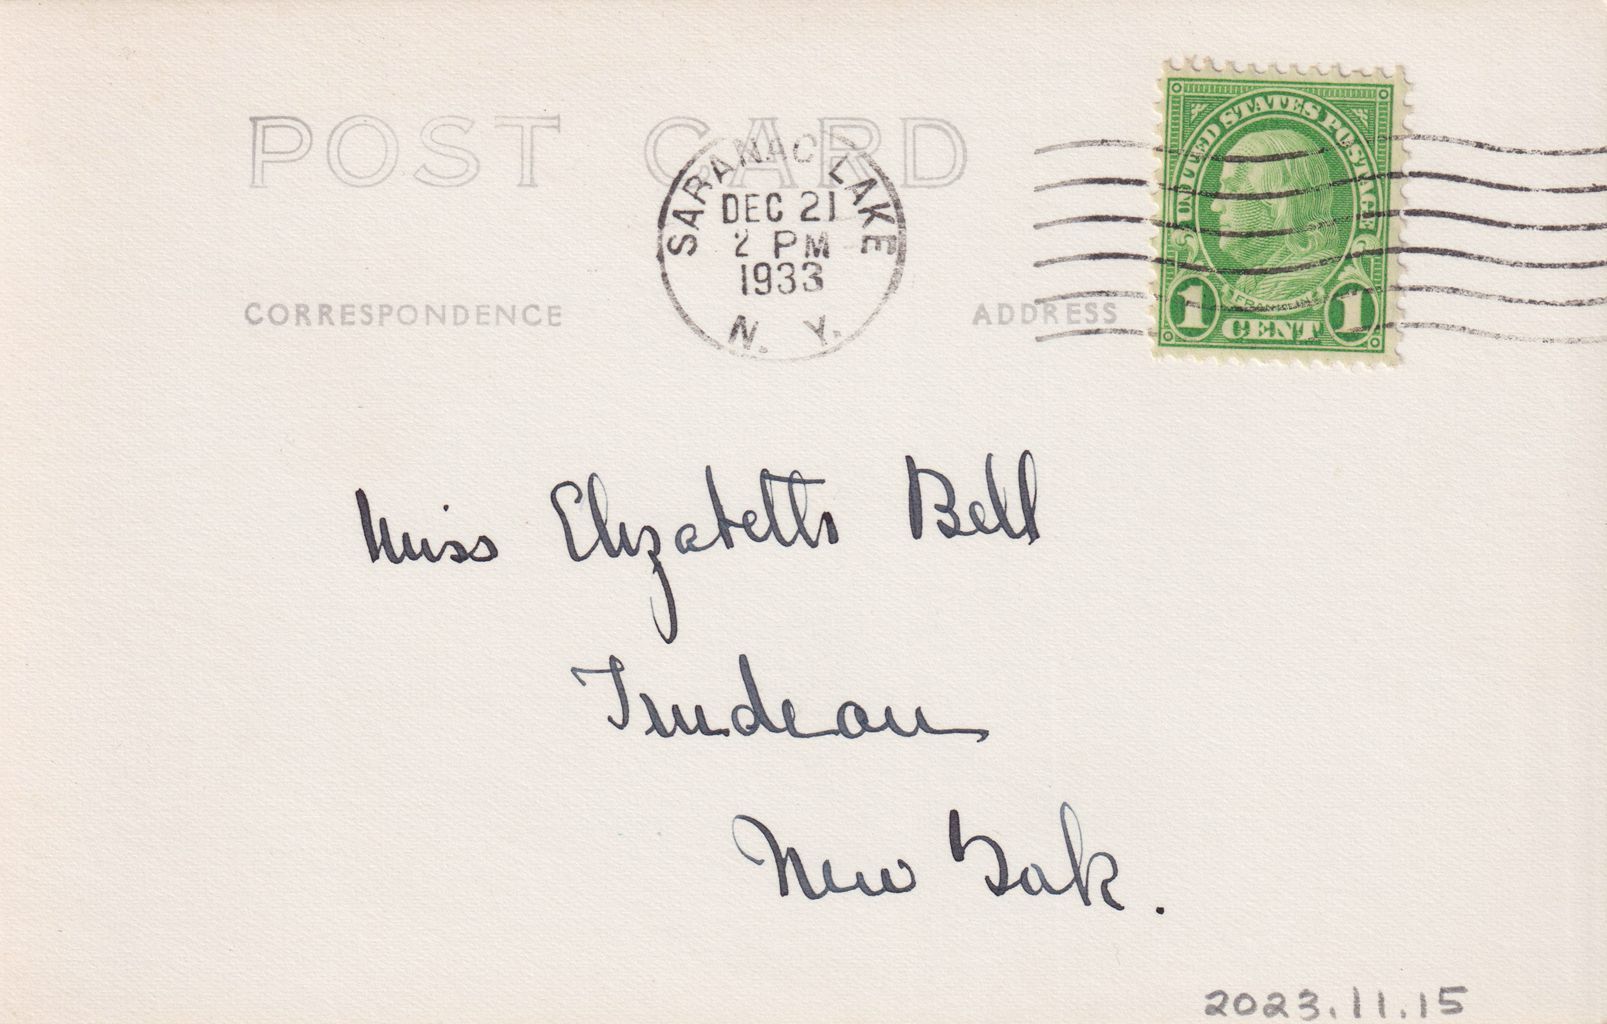 POST CARD
SARANAC LAKE
DEC 21
2 PM
1933
N. Y.
UNITED STATES POSTAGE
FRANKLIN
1 CENT 1
CORRESPONDENCE
ADDRESS
Miss Elizabeth Bell
Trudeau
New York.
2023.11.15